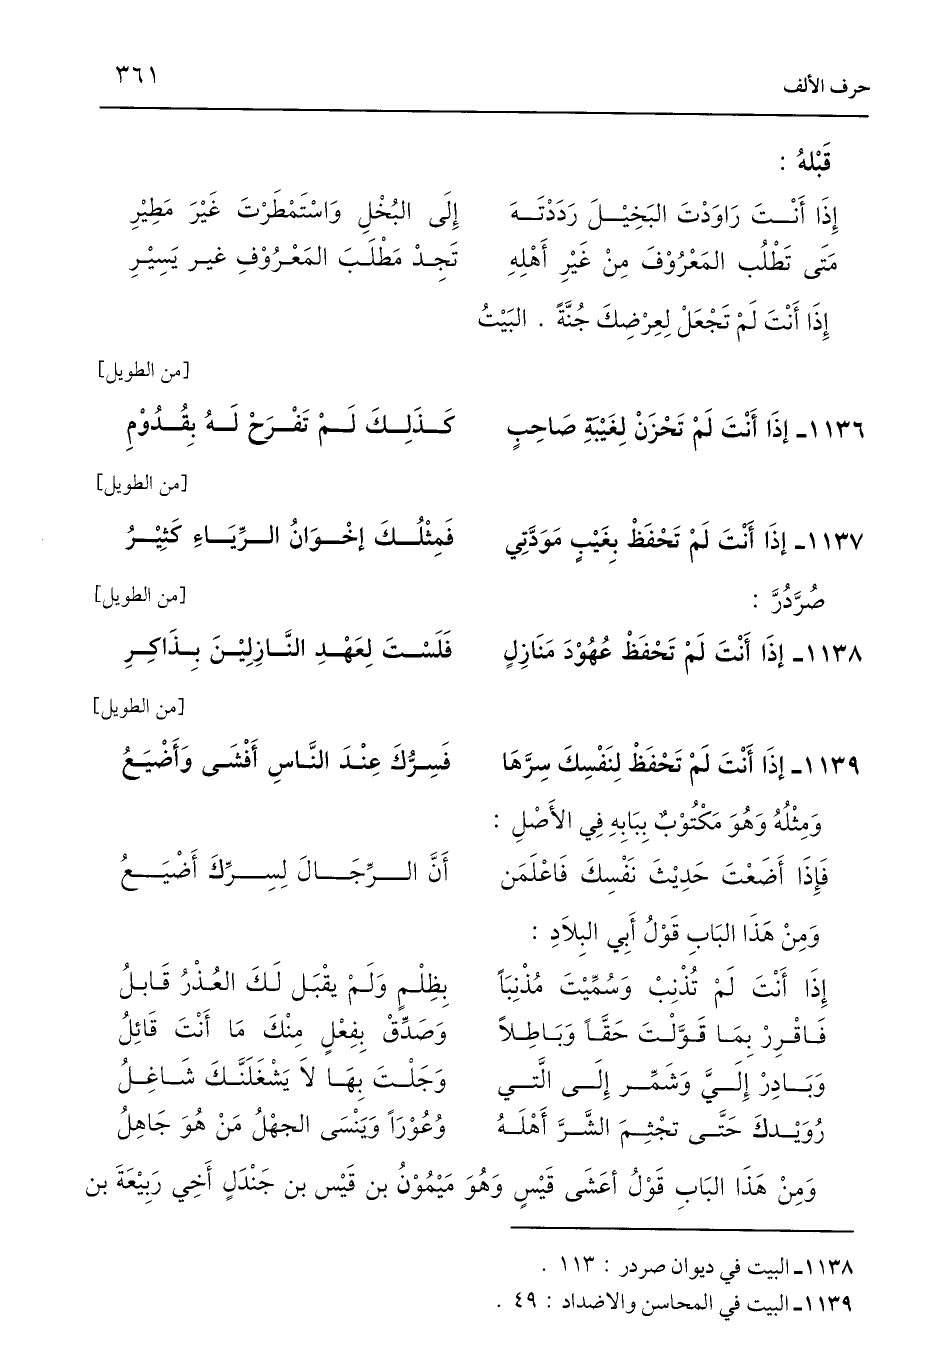 حرف الألف ٣٦١
قَبْلهُ :
إِذَا أَنْتَ رَاوَدْتَ البَخِيْلَ رَدَدْتَهُ إِلَى البُخْلِ وَاسْتَمْطَرْتَ غَيْرَ مَطِيْرِ
مَتَى تَطْلُبِ المَعْرُوْفَ مِنْ غَيْرِ أَهْلِهِ تَجِدْ مَطْلَبَ المَعْرُوْفِ غيرِ يَسِيْرِ
إِذَا أَنْتَ لَمْ تَجْعَلْ لِعِرْضِكَ جُنَّةً . البَيْتُ
[من الطويل]
١١٣٦ـ إِذَا أَنْتَ لَمْ تَحْزَنْ لِغَيْبَةِ صَاحِبٍ كَذَلِكَ لَمْ تَفْرَحْ لَهُ بِقُدُوْمِ
[من الطويل]
١١٣٧ـ إِذَا أَنْتَ لَمْ تَحْفَظْ بِغَيْبٍ مَوَدَّتِي فَمِثْلُكَ إِخْوَانُ الرِّيَاءِ كَثِيْرُ
صُرَّدُرَّ : [من الطويل]
١١٣٨ـ إِذَا أَنْتَ لَمْ تَحْفَظْ عُهُوْدَ مَنَازِلٍ فَلَسْتَ لِعَهْدِ النَّازِلِيْنَ بِذَاكِرِ
[من الطويل]
١١٣٩ـ إِذَا أَنْتَ لَمْ تَحْفَظْ لِنَفْسِكَ سِرَّهَا فَسِرُّكَ عِنْدَ النَّاسِ أَفْشَى وَأَضْيَعُ
وَمِثْلُهُ وَهُوَ مَكْتُوْبٌ بِبَابِهِ فِي الأَصْلِ :
فَإِذَا أَضَعْتَ حَدِيْثَ نَفْسِكَ فَاعْلَمَن أَنَّ الرِّجَالَ لِسِرِّكَ أَضْيَعُ
وَمِنْ هَذَا البَابِ قَوْلُ أَبِي البِلاَدِ :
إِذَا أَنْتَ لَمْ تُذْنِبْ وَسُمِّيْتَ مُذْنِبَاً بِظُلْمٍ وَلَمْ يقْبَل لَكَ العُذْرُ قَابلُ
فَاقْرِرْ بِمَا قَوَّلْتَ حَقَّاً وَبَاطِلاً وَصَدِّقْ بِفِعْلٍ مِنْكَ مَا أَنْتَ قَائِلُ
وَبَادِرْ إِلَيَّ وَشَمِّر إِلَى الَّتِي وَجَلْتَ بِهَا لاَ يَشْغَلَنَّكَ شَاغِلُ
رُوَيْدكَ حَتَّى تجْثِمَ الشَّرَّ أَهْلَهُ وُعُوْرَاً وَيَنْسَى الجهْلُ مَنْ هُوَ جَاهِلُ
وَمِنْ هَذَا البَابِ قَوْلُ أعَشَى قَيْسٍ وَهُوَ مَيْمُوْنُ بن قَيْسِ بن جَنْدَلٍ أَخِي رَبِيْعَةَ بن
١١٣٨ـ البيت في ديوان صردر : ١١٣ .
١١٣٩ـ البيت في المحاسن والاضداد : ٤٩ .